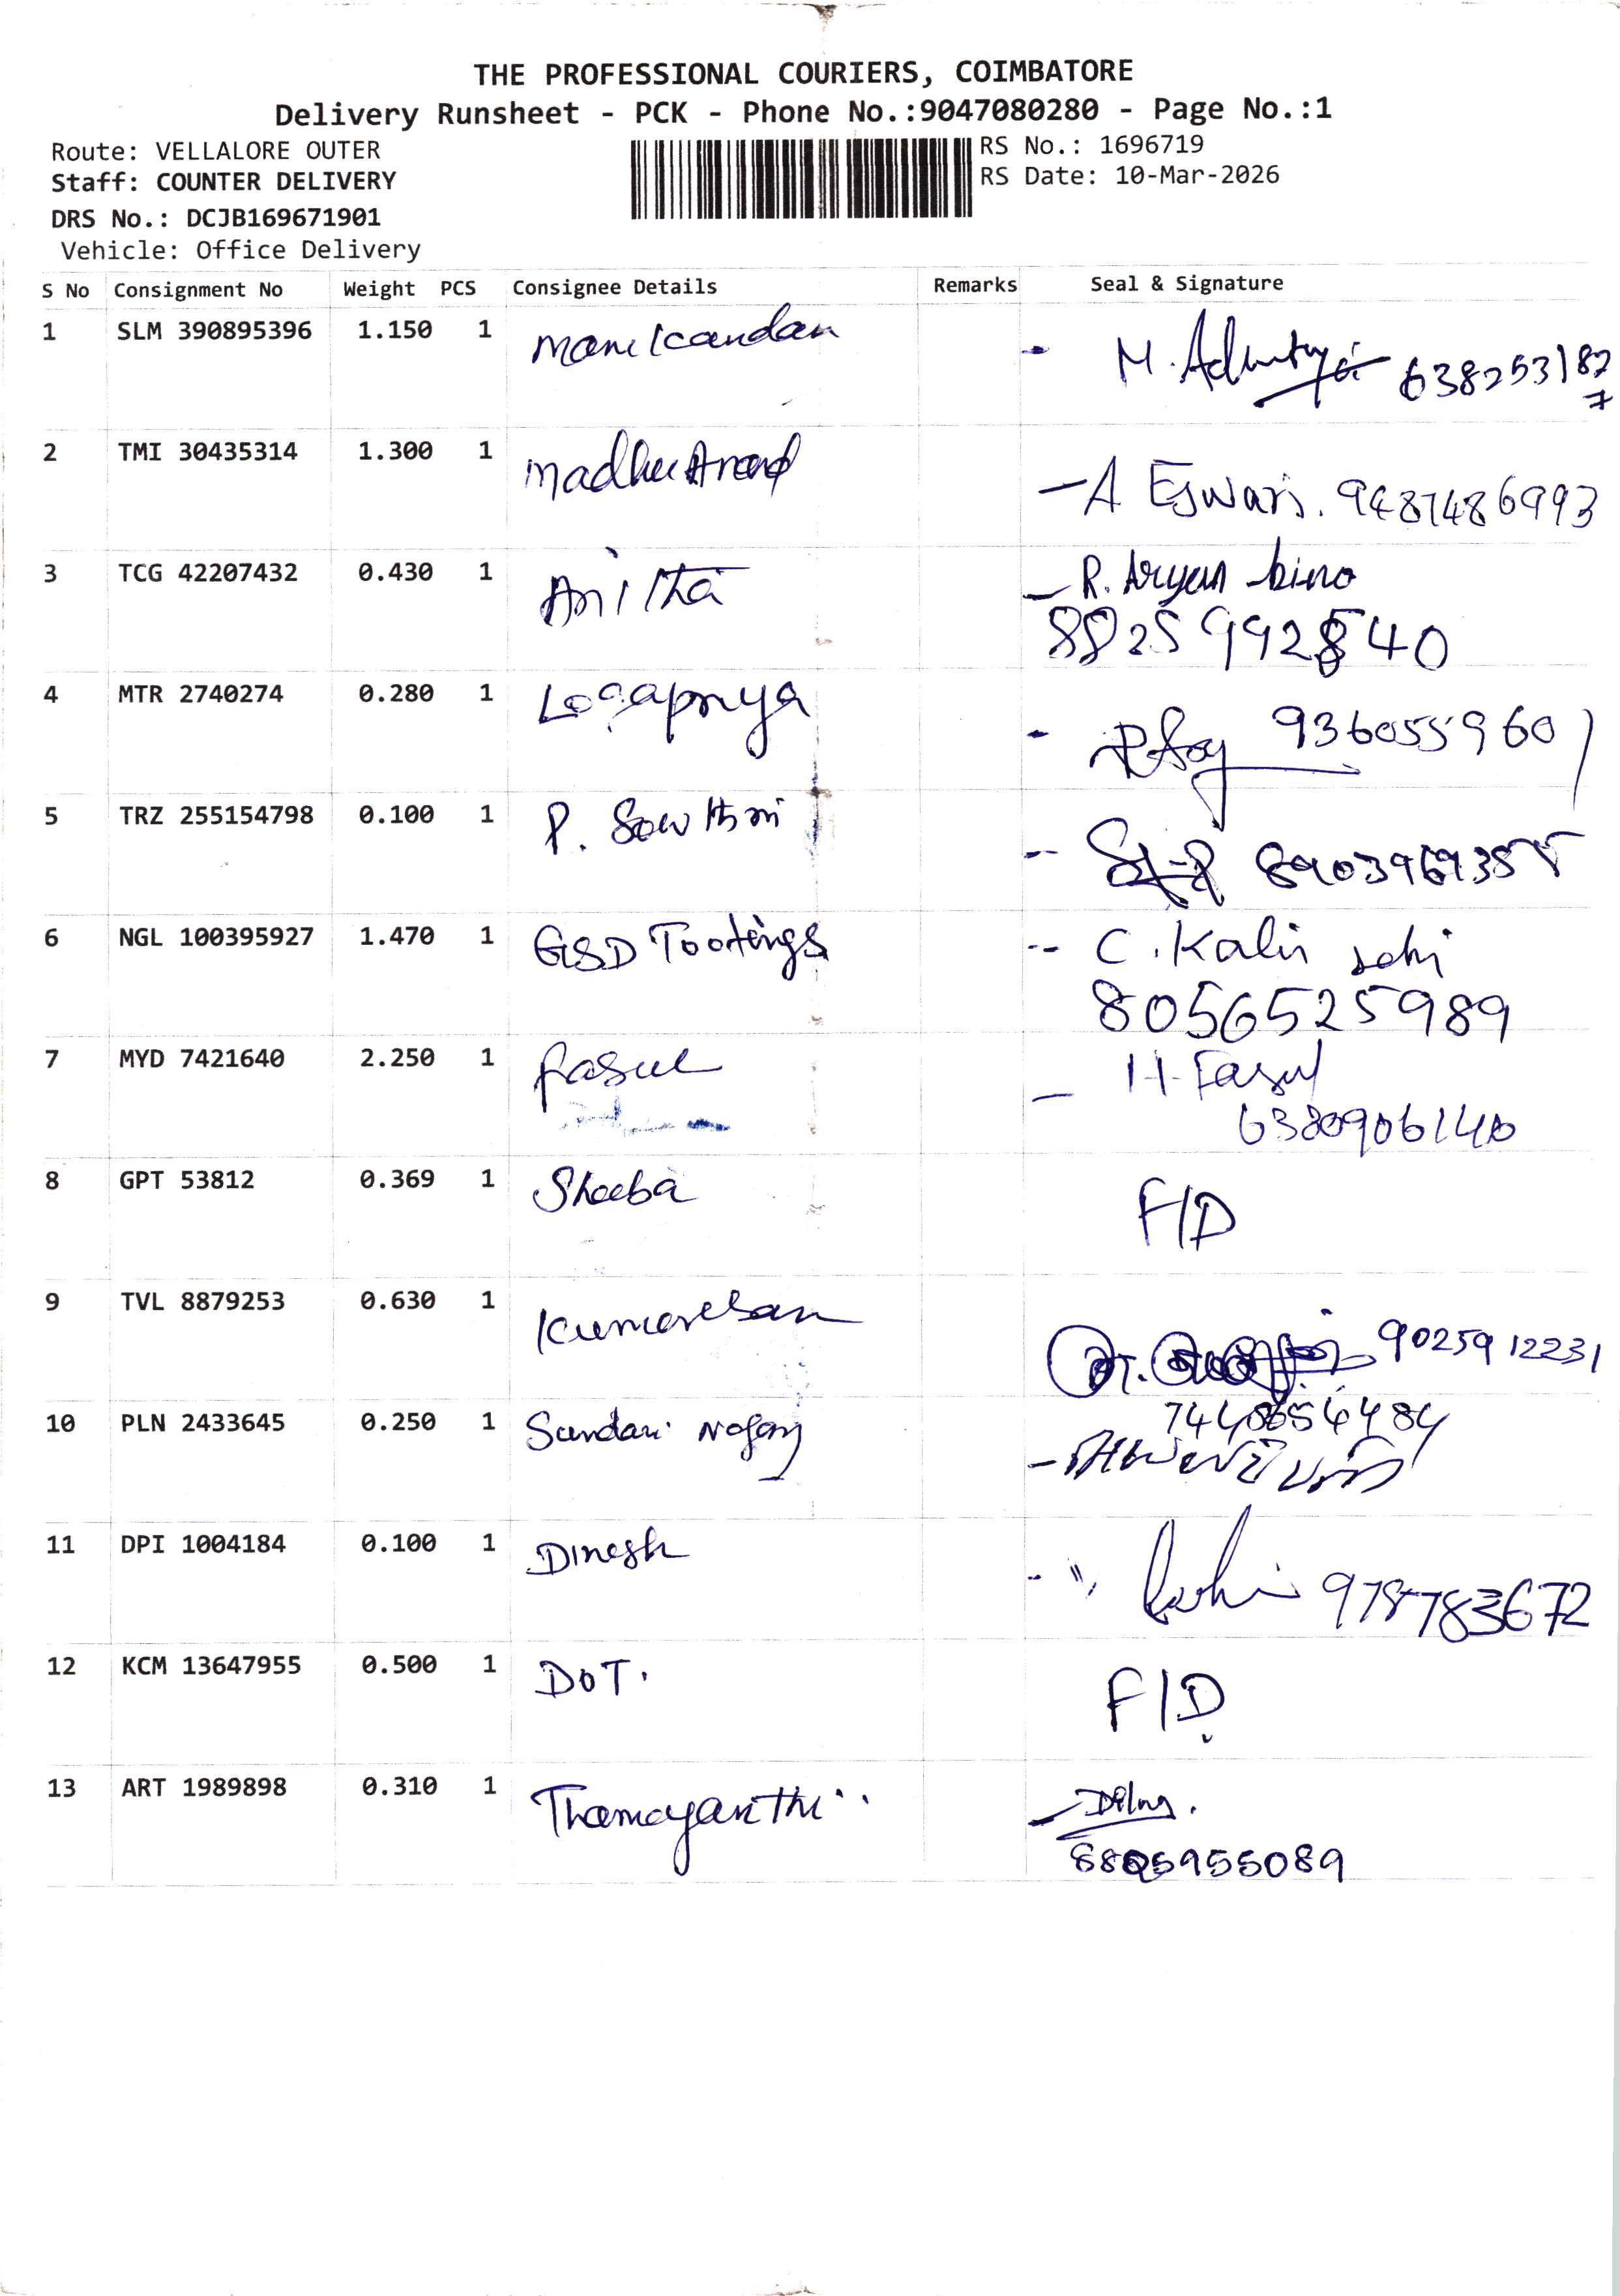 THE PROFESSIONAL COURIERS, COIMBATORE
Delivery Runsheet - PCK - Phone No.:9047080280 - Page No.:1
Route: VELLALORE OUTER
RS No.: 1696719
Staff: COUNTER DELIVERY
RS Date: 10-Mar-2026
DRS No.: DCJB169671901
Vehicle: Office Delivery
S No Consignment No Weight PCS Consignee Details Remarks Seal & Signature
1 SLM 390895396 1.150 1 Manikandan M.
2 TMI 30435314 1.300 1 Madhu Anand A Eswari. 9487486993
3 TCG 42207432 0.430 1 Anitha R. Aryan bino
4 MTR 2740274 0.280 1 Logapriya 9360559601
5 TRZ 255154798 0.100 1 P. 8903969355
6 NGL 100395927 1.470 1 GSD Tootings C. Kalir
8056525989
7 MYD 7421640 2.250 1 fasul H. Fasul
6380906140
8 GPT 53812 0.369 1 Sheeba F/D
9 TVL 8879253 0.630 1 Kumaresan 9025912231
10 PLN 2433645 0.250 1 Sundari
11 DPI 1004184 0.100 1 Dinesh
12 KCM 13647955 0.500 1 DOT. F/D
13 ART 1989898 0.310 1 Thamayanthi